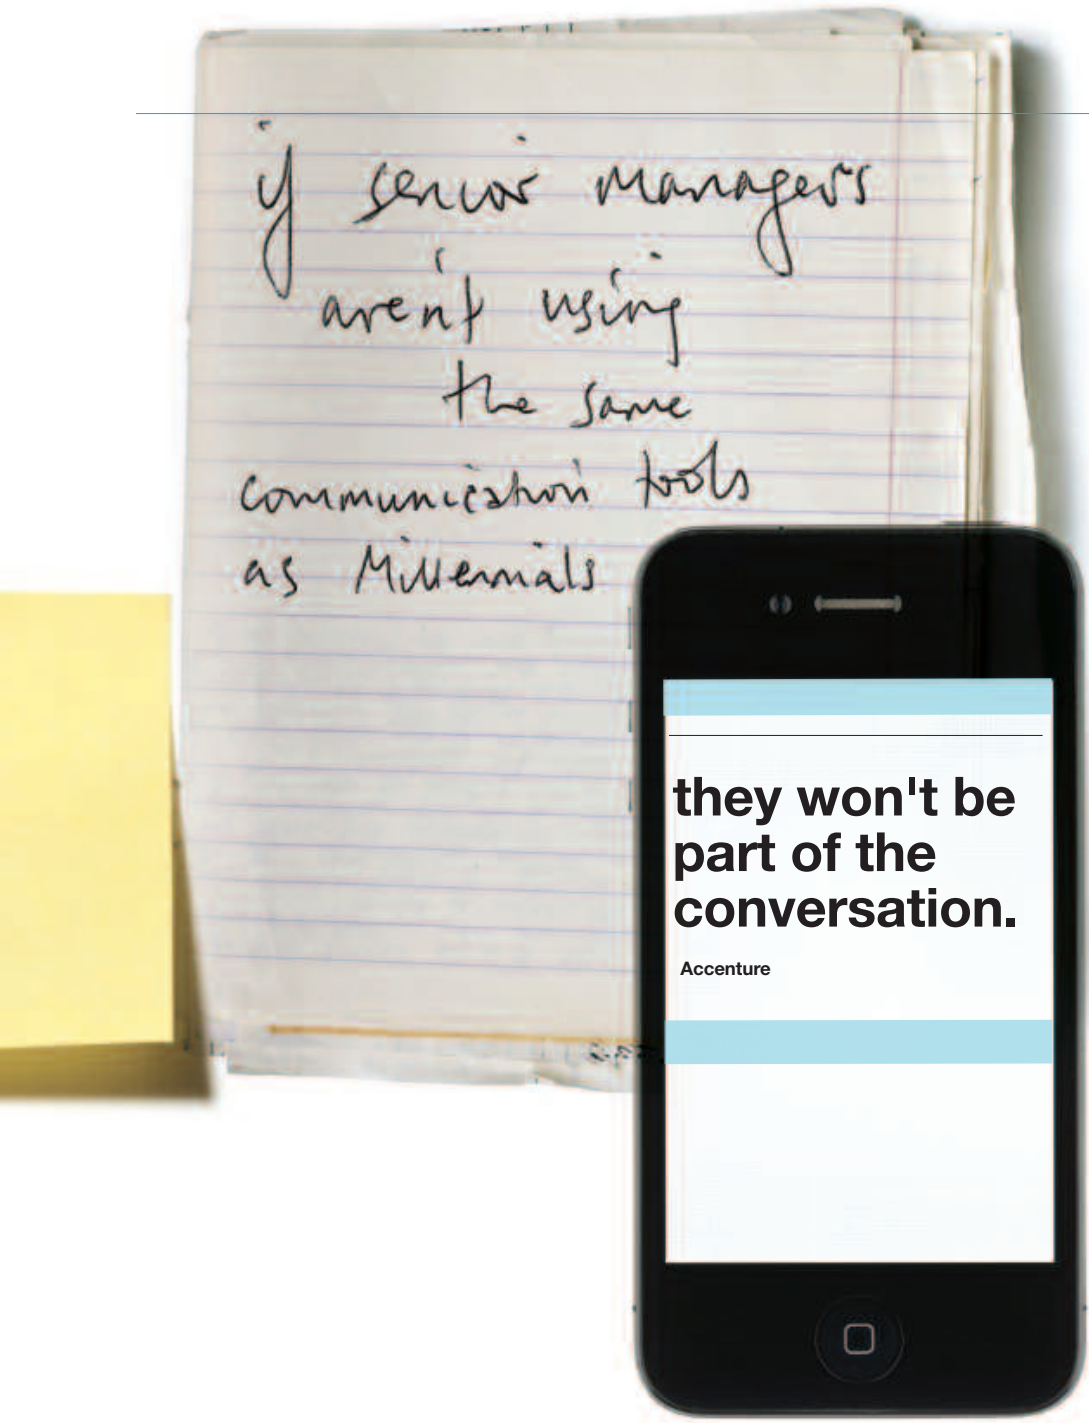 if senior managers
aren't using
the same
communication tools
as Millennials
they won't be
part of the
conversation.
Accenture